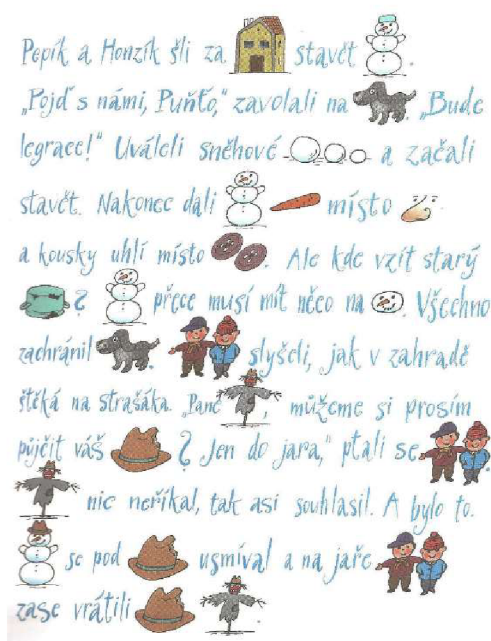 Pepík a Honzík šli za stavět .
„Pojď s námi, Puňťo,“ zavolali na . „Bude
legrace!“ Uváleli sněhové a začali
stavět. Nakonec dali místo
a kousky uhlí místo . Ale kde vzít starý
? přece musí mít něco na . Všechno
zachránil . slyšeli, jak v zahradě
štěká na strašáka. „Pane , můžeme si prosím
půjčit váš ? Jen do jara,“ ptali se
nic neříkal, tak asi souhlasil. A bylo to.
se pod usmíval a na jaře
zase vrátili .